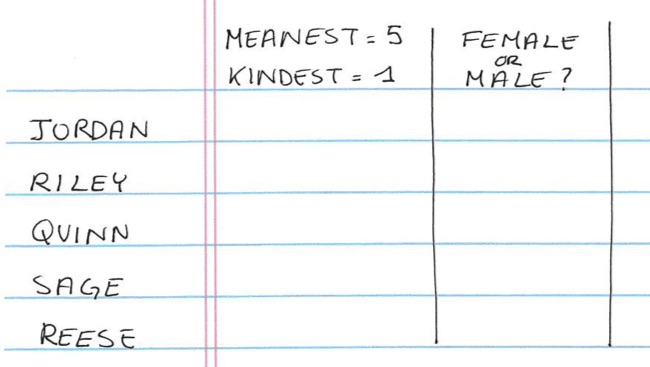 MEANEST = 5
KINDEST = 1
FEMALE
OR
MALE?
JORDAN
RILEY
QUINN
SAGE
REESE